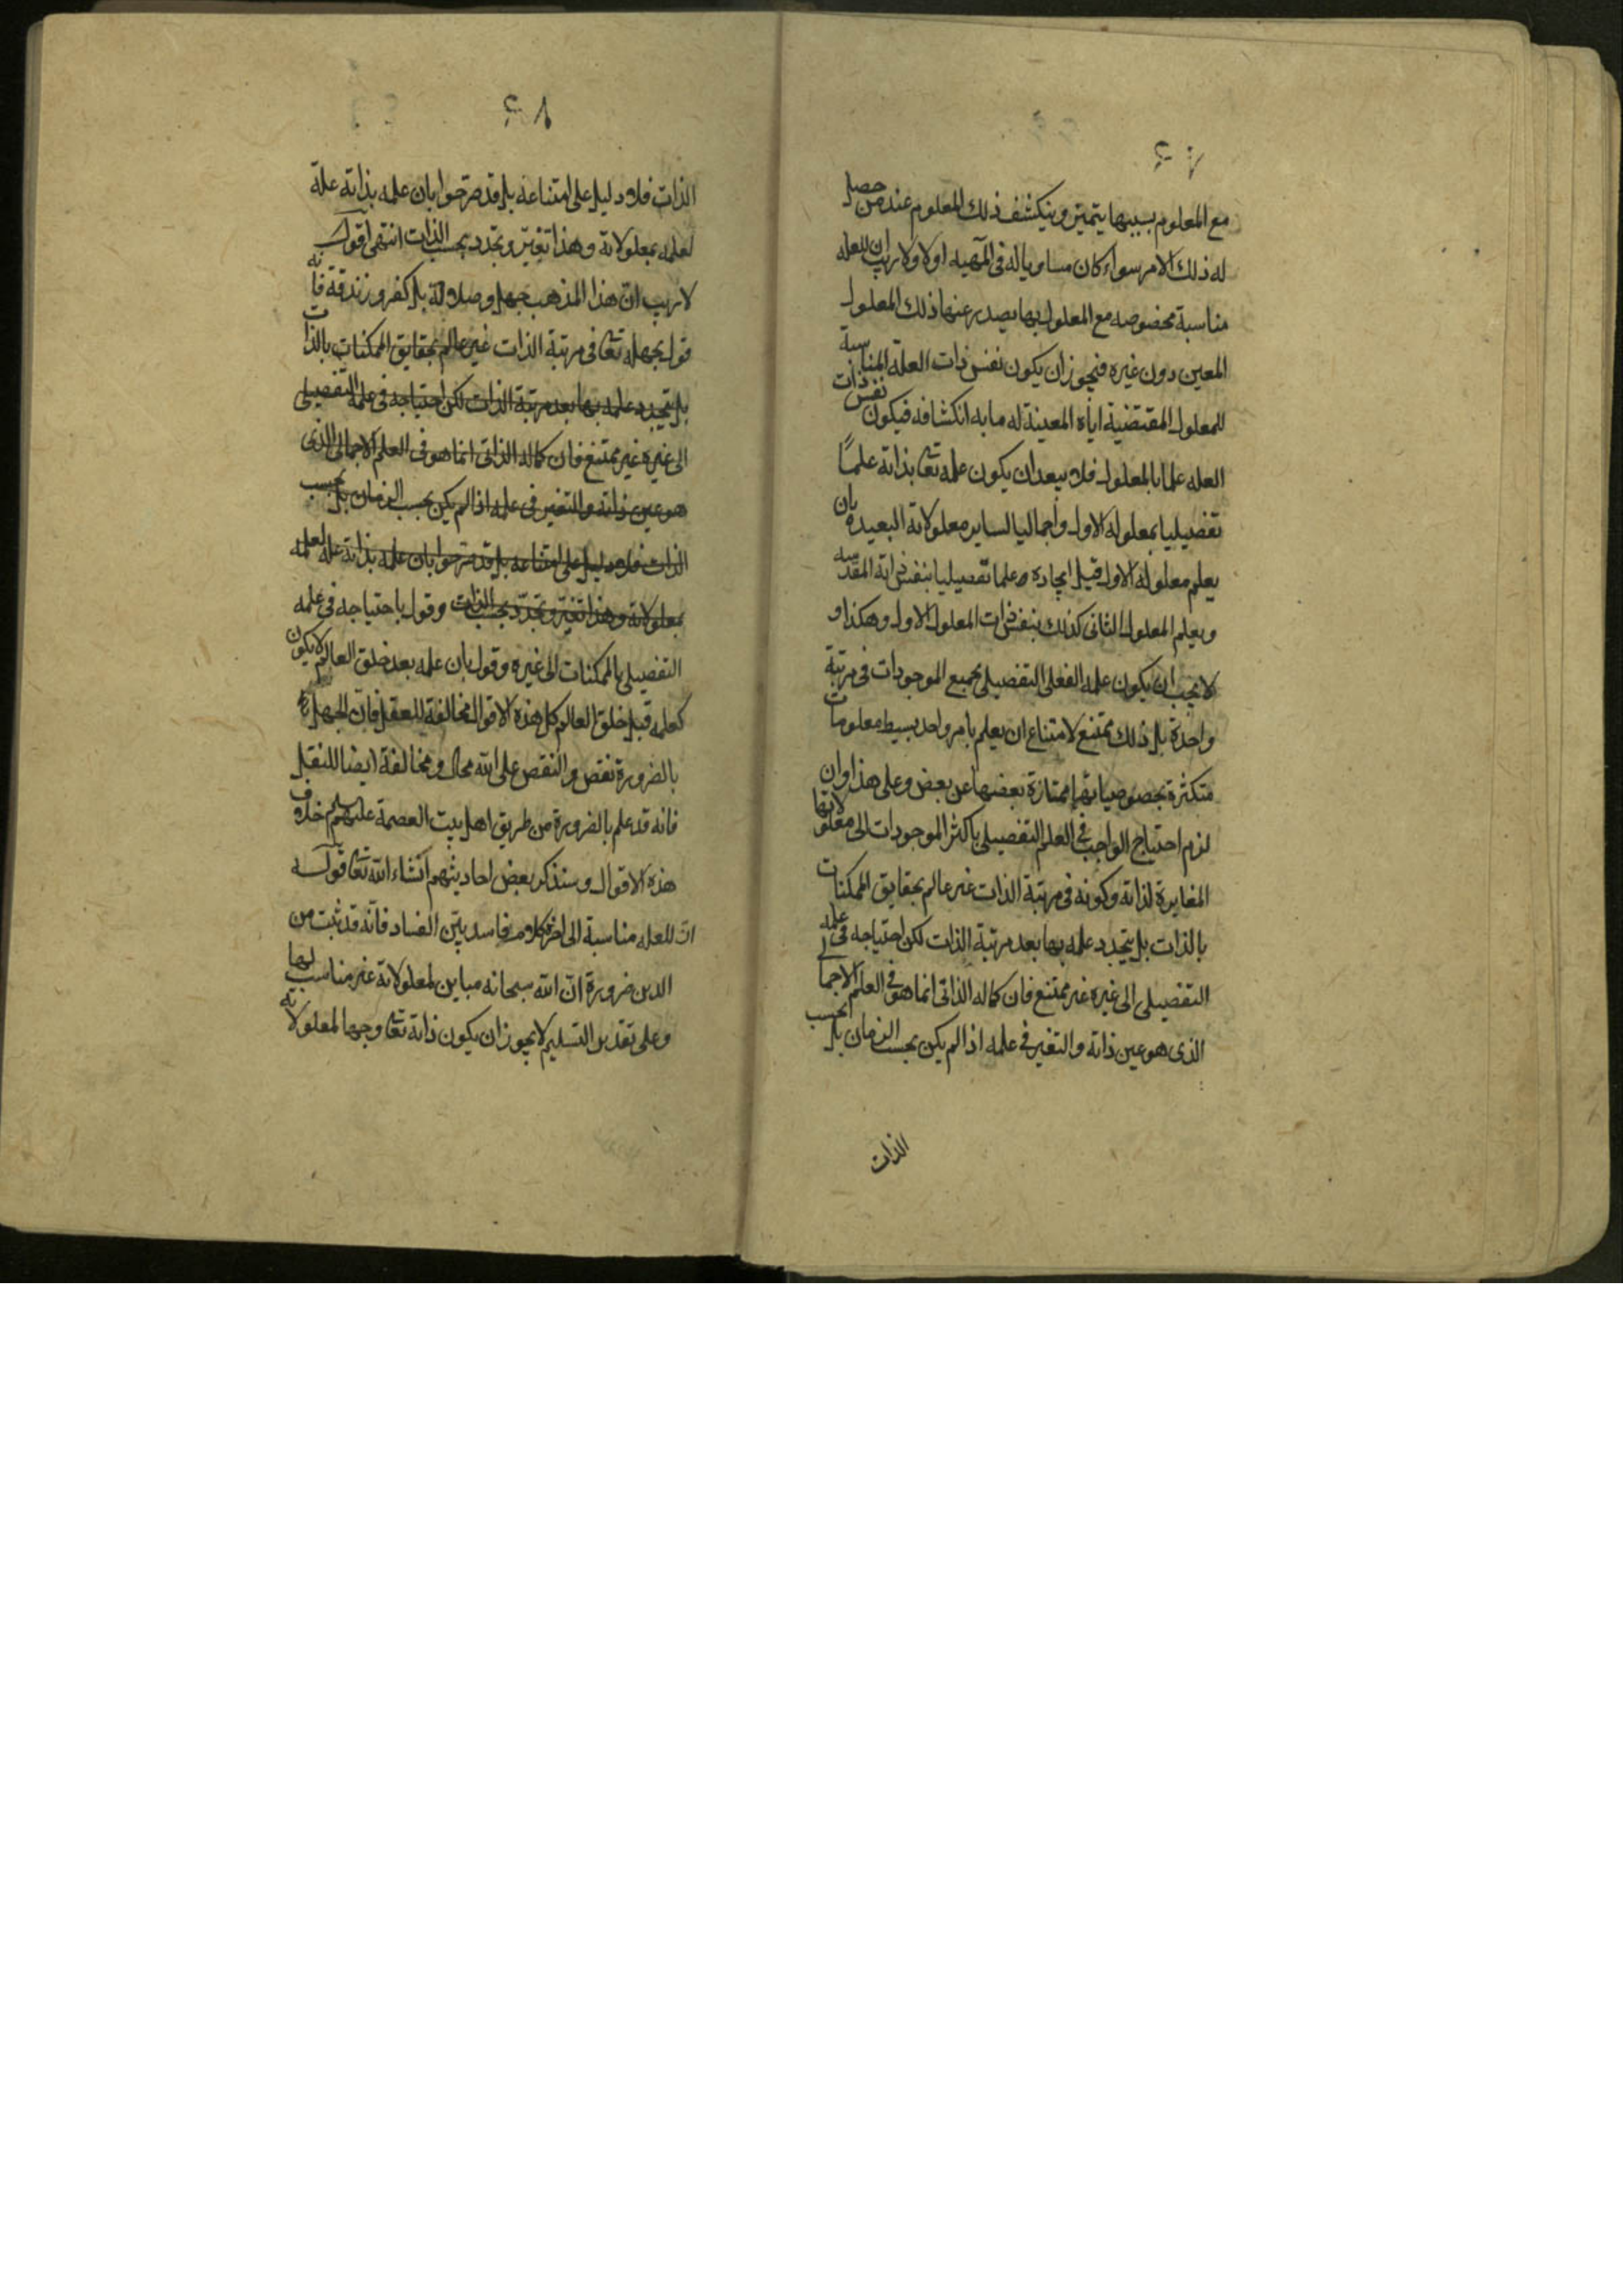 مع المعلوم بسببها يتميز وينكشف ذلك المعلوم عند من حصل
له ذلك الامر سواء كان مساويا له في المهية اولا ولا ريب ان للعله
مناسبة مخصوصه مع المعلول بها يصدر عنها ذلك المعلول
المعين دون غيره فيجوز ان يكون نفس ذات العلة المناسبة
للمعلول المقتضية اياه المعينة له ما به انكشافه فيكون نفس ذات
العله علما بالمعلول فلا يبعد ان يكون علمه تعا بذاته علمًا
تفصيليا بمعلوله الاول واجماليا لساير معلولاته البعيده بان
يعلم معلوله الاول قبل ايجاده علما تفصيليا بنفس ذاته المقدسه
ويعلم المعلول الثاني كذلك بنفس ذات المعلول الاول وهكذا و
لا يجب ان يكون علمه الفعلي التفصيلي بجميع الموجودات في مرتبة
واحدة بل ذلك ممتنع لامتناع ان يعلم بامر واحد بسيط معلومات
متكثرة بخصوصياتها ممتازة بعضها عن بعض وعلى هذا وان
لزم احتياج الواجب في العلم التفصيلي باكثر الموجودات الى معلولاتها
المغايرة لذاته وكونه في مرتبة الذات غير عالم بحقايق الممكنات
بالذات بل يتجدد علمه بها بعد مرتبة الذات لكن احتياجه في علمه
التفصيلي الى غيره غير ممتنع فان كماله الذاتي انما هو في العلم الاجمالي
الذي هو عين ذاته والتغير في علمه اذا لم يكن بحسب الزمان بل بحسب
الذات
الذات فلا دليل على امتناعه بل قد صرحوا بان علمه بذاته علة
لعلمه بمعلولاته وهذا تغيّر وتجدد بحسب الذات انتهى اقول
لا ريب ان هذا المذهب جهل وضلالة بل كفر وزندقة فانه
قول بجهله تعا في مرتبة الذات غير عالم بحقايق الممكنات بالذات
بل يتجدد علمه بها بعد مرتبة الذات لكن احتياجه في علمه التفصيلي
الى غيره غير ممتنع فان كماله الذاتي انما هو في العلم الاجمالي الذي
هو عين ذاته والتغير في علمه اذا لم يكن بحسب الزمان بل بحسب
الذات فلا دليل على امتناعه بل قد صرحوا بان علمه بذاته علة لعلمه
بمعلولاته وهذا تغيّر وتجدّد بحسب الذات وقول باحتياجه في علمه
التفصيلي بالممكنات الى غيره وقول بان علمه بعد خلق العالم لا يكون
كعلمه قبل خلق العالم كل هذه الاقوال مخالفة للعقل فان الجهل
بالضرورة نقص والنقص على الله محال ومخالفة ايضا للنقل
فانه قد علم بالضرورة من طريق اهل بيت العصمة عليهم خلاف
هذه الاقوال وسنذكر بعض احاديثهم انشاء الله تعا قوله
ان للعله مناسبة الى اخر كلامه فاسد بيّن الفساد فانّه قد ثبت من
الدين ضرورة ان الله سبحانه مباين لمعلولاته غير مناسب لها
وعلى تقدير التسليم لا يجوز ان يكون ذاته تعا وجها لمعلولاته